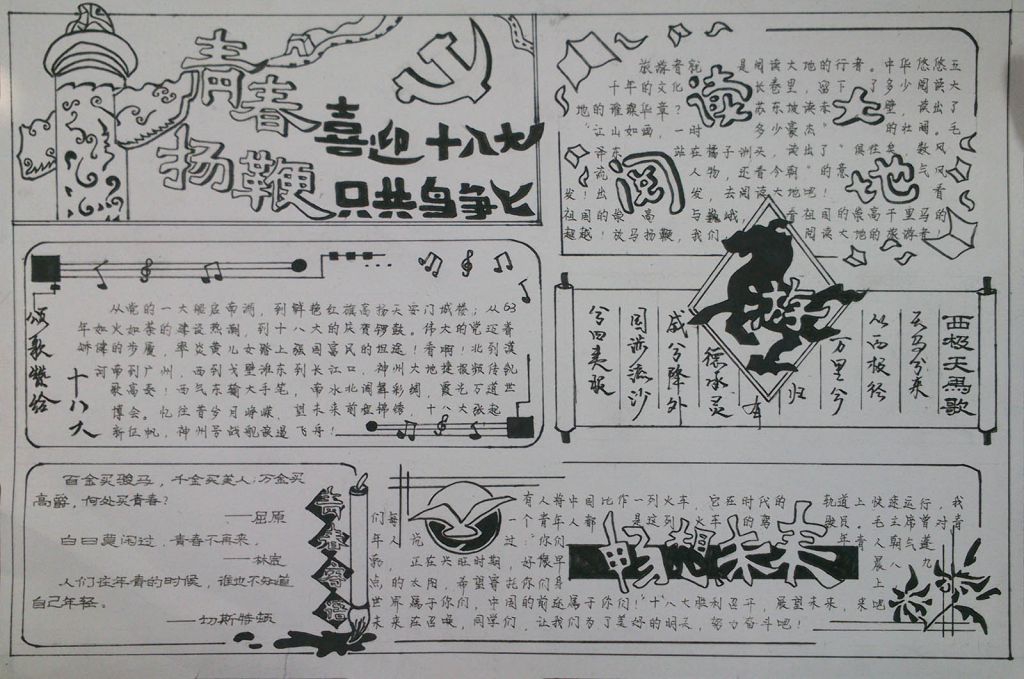 青春
扬鞭
喜迎十八大
只共鸟争飞
阅读大地
旅游者就是阅读大地的行者。中华悠悠五
千年的文化长卷里，留下了多少阅读大
地的璀璨华章？苏东坡读本壁，读出了
"江山如画，一时多少豪杰"的壮阔。毛
泽东站在橘子洲头，读出了"俱往矣，数风
流人物，还看今朝"的意气风
发！出发，去阅读大地吧！看
祖国的崇高与巍峨，看祖国的崇高千里马的
超越！放马扬鞭，我们阅读大地的旅游者！
颂歌赞给
十八大
从党的一大船启帝洲，到鲜艳红旗高扬天安门城楼；从63
年如火如荼的建设热潮，到十八大的庆贺锣鼓。伟大的党迈着
矫健的步履，率炎黄儿女踏上强国富民的坦途！看啊！北到漠
河南到广州，西到戈壁滩东到长江口，神州大地捷报频传乳
歌高奏！西气东输大手笔，
博会。忆往昔岁月峥嵘，望未来前程锦绣，十八大张起
新征帆，神州号战舰浪遏飞舟！
游
西极天馬歌
天马兮来
从西极经
万里兮
归
有
德承灵
威兮降外
国涉流沙
兮四夷服
百金买骏马，千金买美人；万金买
高爵，何处买青春？
——屈原
白日莫闲过，青春不再来。
——林宽
人们在年青的时候，谁也不知道
自己年轻。
——切斯特顿
青春寄语
畅想未来
有人将中国比作一列火车，它在时代的轨道上快速运行，我
们每一个青年人都是这列火车的驾驶员。毛主席曾对青
年人说过："你们青年人朝气蓬
勃，正在兴旺时期，好像早晨八九
点的太阳，希望寄托你们身上
世界属于你们，中国的前途属于你们！"十八大胜利召开，展望未来，来吧
未来在召唤，同学们，让我们为了美好的明天，努力奋斗吧！